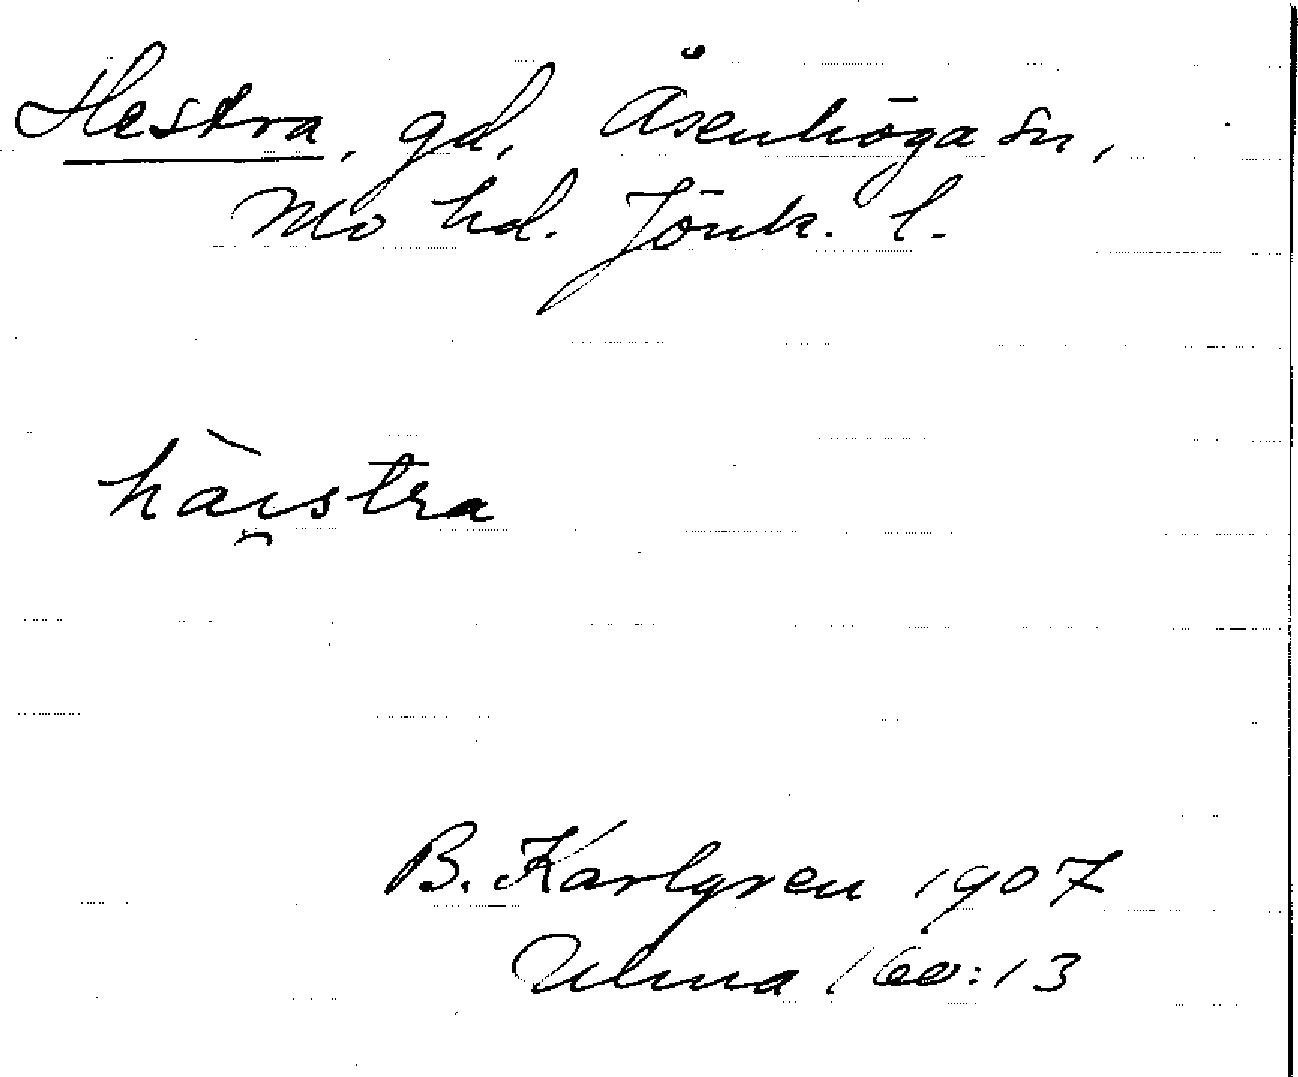 Hestra, gd, Åsenhöga sn,
Mo hd. Jönk. l.
hàı̯stra
B. Karlgren 1907
Ulma 160:13